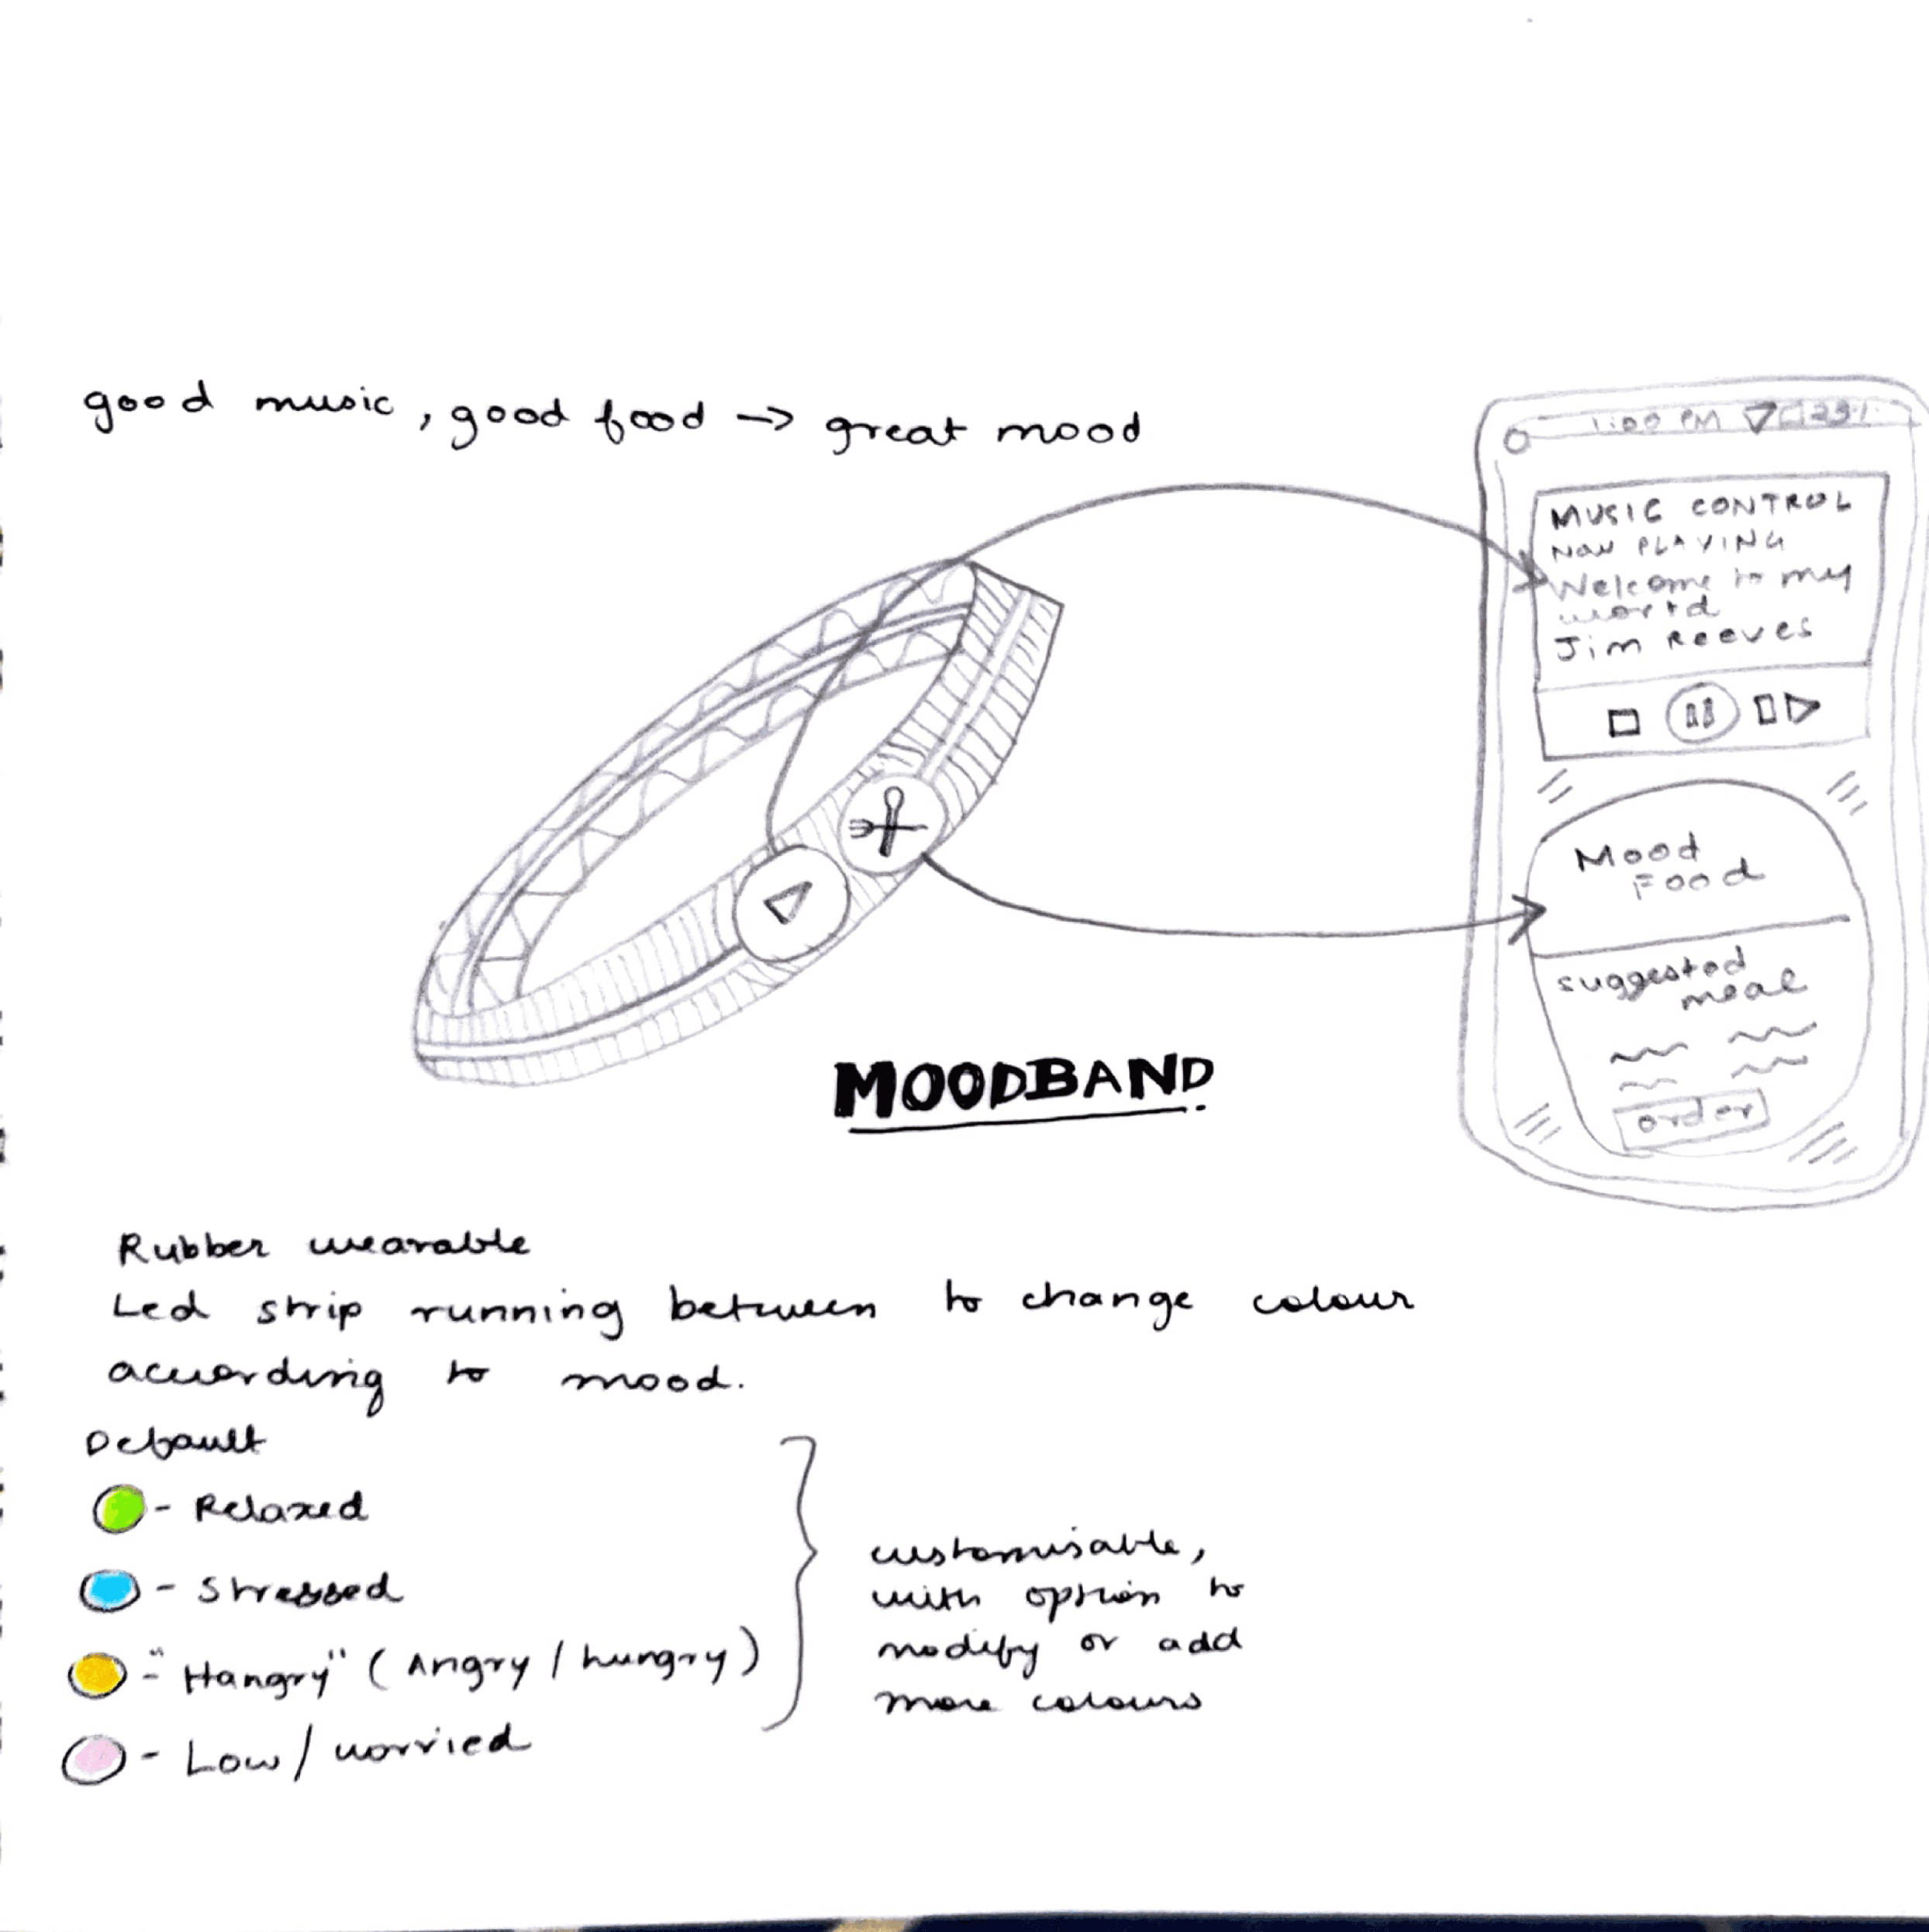 good music, good food → great mood
1:00 PM
MUSIC CONTROL
NOW PLAYING
Welcome to my
world
Jim Reeves
Mood
Food
suggested
meal
order
MOODBAND
Rubber wearable
Led strip running between to change colour
according to mood.
Default
- Relaxed
- Stressed
- "Hangry" (Angry / hungry)
- Low / worried
customisable,
with option to
modify or add
more colours